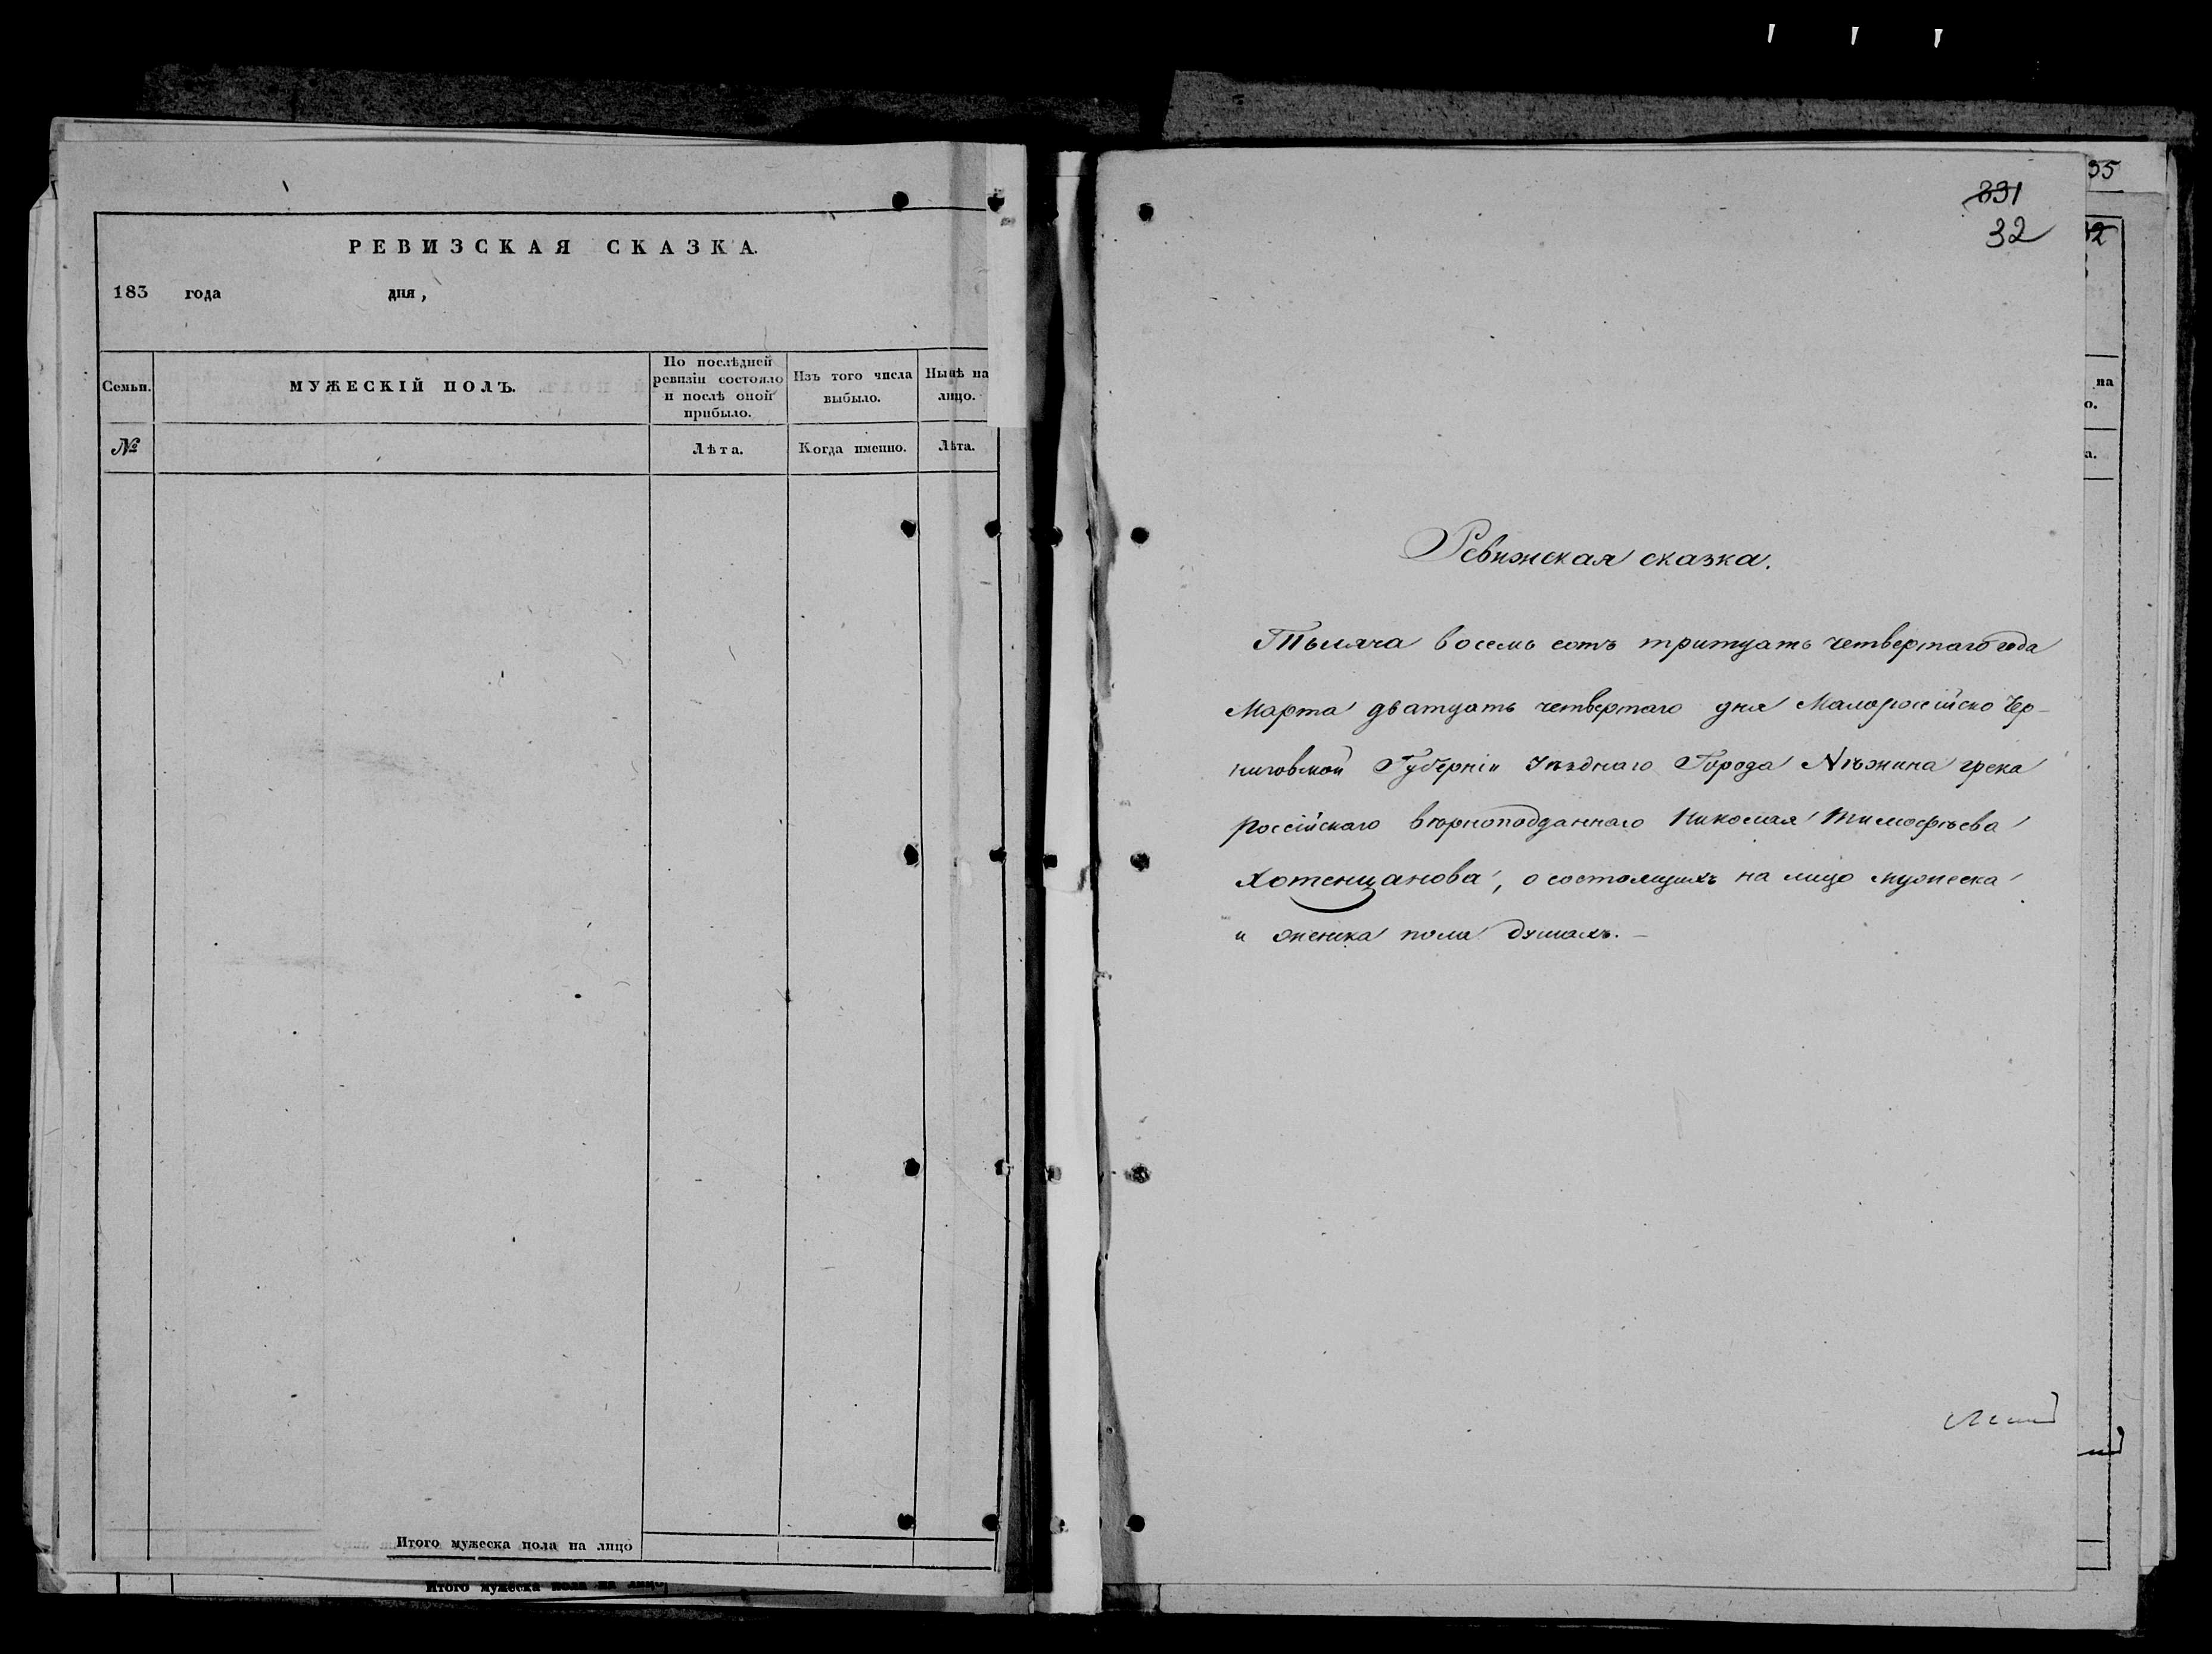 РЕВИЗСКАЯ СКАЗКА.
183 года дня,
Семьи.
МУЖЕСКІЙ ПОЛЪ.
По послѣдней
ревизіи состояло
и послѣ оной
прибыло.
Изъ того числа
выбыло.
Нынѣ на
лицо.
№
Лѣта.
Когда именно.
Лѣта.
Итого мужеска пола на лицо
Итого мужеска пола на лицо
391
32
Ревижская сказка.
Тысяча восемь сотъ тритцать четвертаго года
Марта дватцать четвертаго дня Малороссійско Чер-
ниговской Губерніи Уѣзднаго Города Нѣжина грека
россійскаго вѣрноподданнаго Николая Тимофѣева
Хотенцанова, о состоящихъ на лицо мужеска
и женска пола душахъ.-
35
на
о.
а.